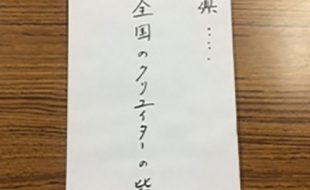 県.....
全国のクリエイターの皆